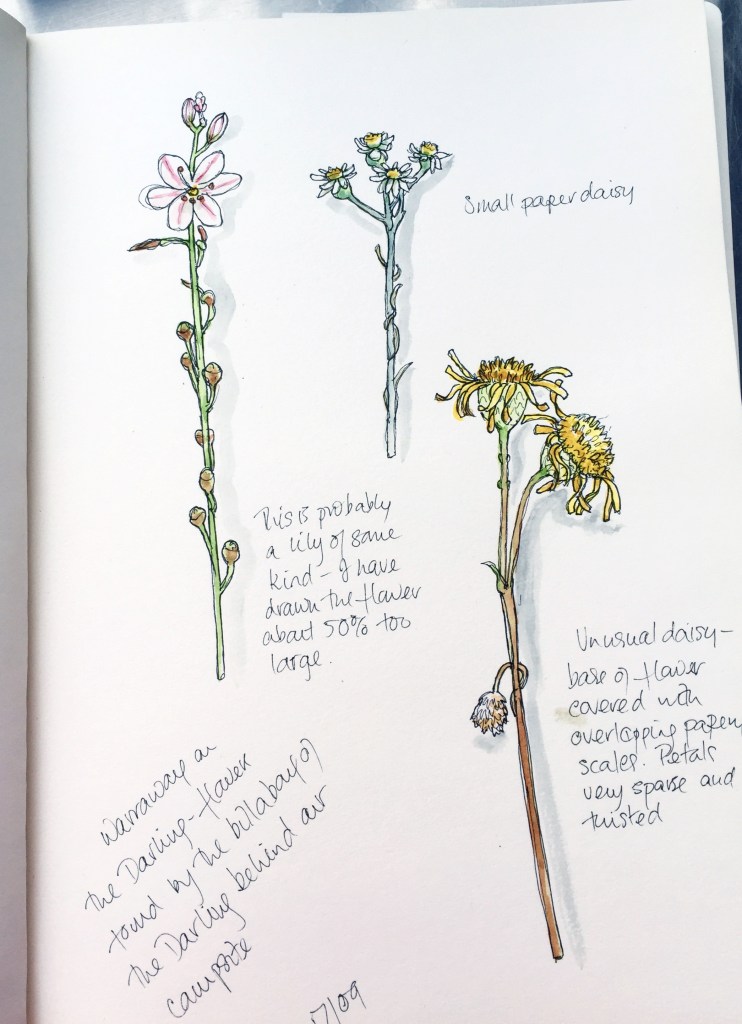 Small paper daisy
This is probably
a lily of some
kind - I have
drawn the flower
about 50% too
large.
Unusual daisy -
base of flower
covered with
overlapping papery
scales. Petals
very sparse and
twisted
Warraway on
the Darling - flower
found by the billabong of
the Darling behind our
campsite
7/09